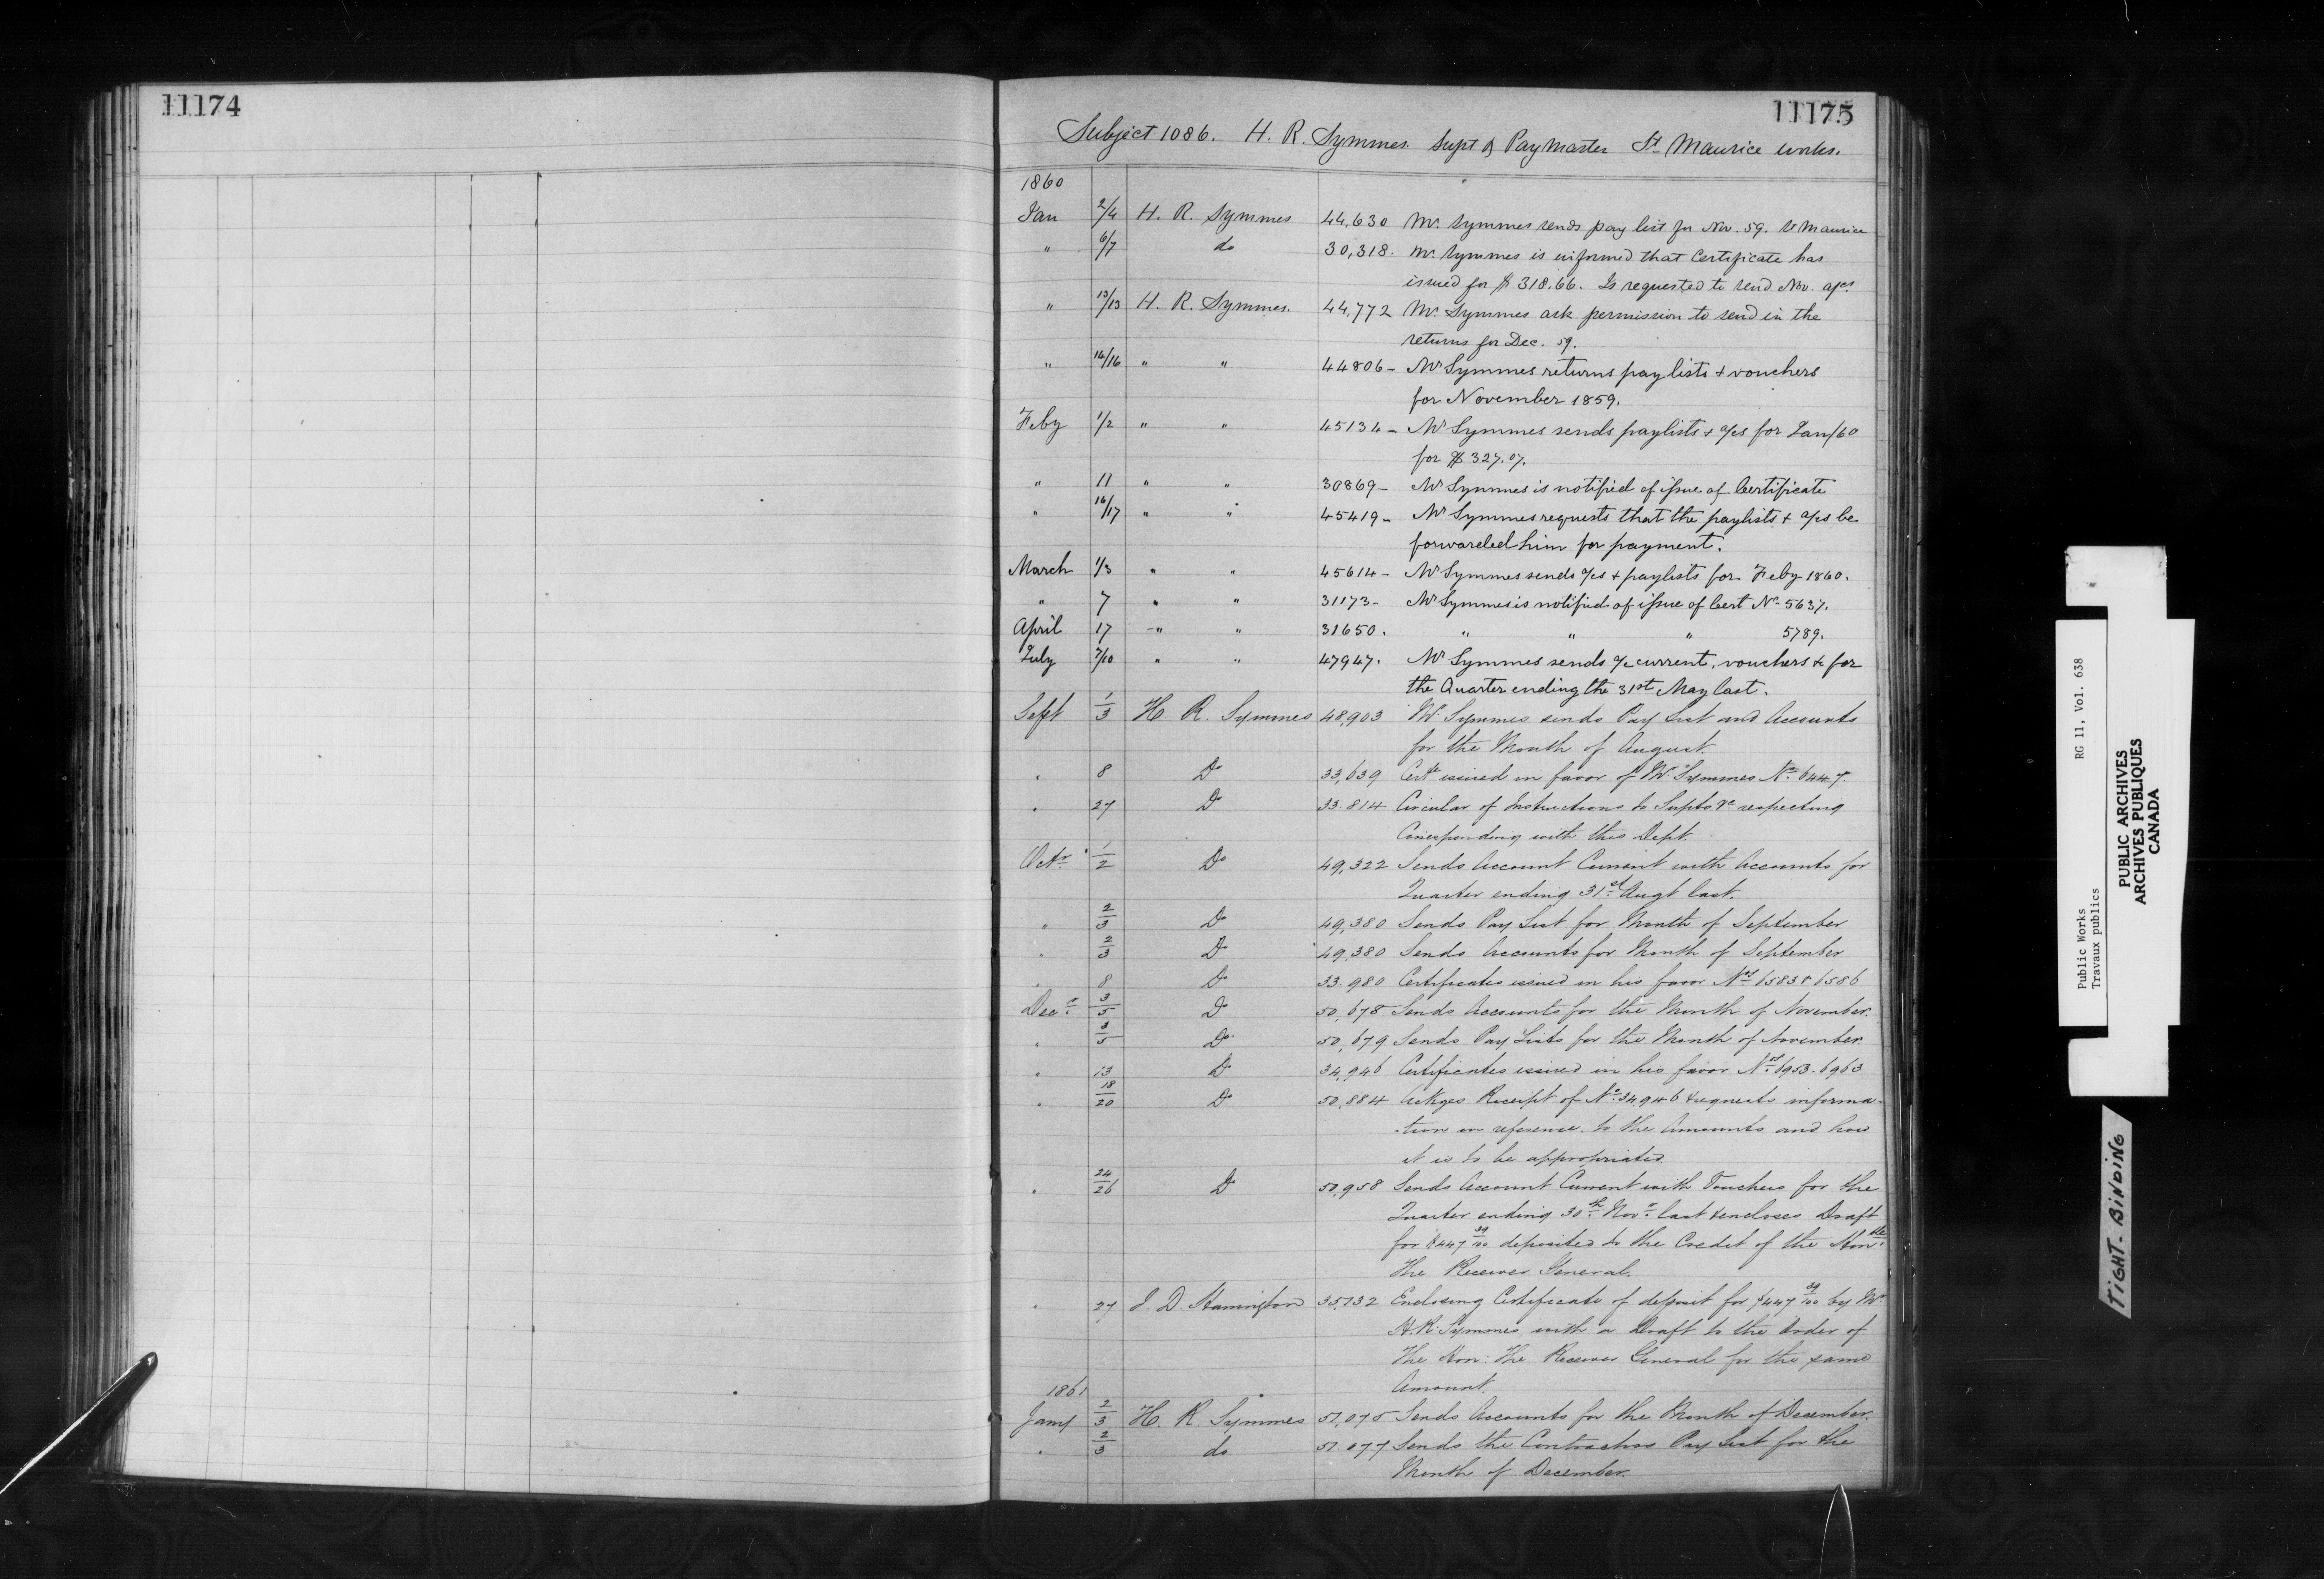 11174
11175
Subject 1086. H. R. Symmes. Supt & PayMaster St Maurice works.
1860
Jan 2/4 H. R. Symmes 44,630 Mr. Symmes sends pay list for Nov. 59. St Maurice
" 6/7 do 30,318. Mr. Symmes is informed that Certificate has
issued for $318.66. Is requested to send Nov. a/cs
" 13/13 H. R. Symmes. 44,772 Mr. Symmes ask permission to send in the
returns for Dec. 59.
" 14/16 " " 44806- Mr Symmes returns pay lists + vouchers
for November 1859.
Feby 1/2 " " 45134- Mr Symmes sends paylists + a/cs for Jan/60
for $327.07.
" 11 " " 30869- Mr Symmes is notified of issue of Certificate
" 16/17 " " 45419- Mr Symmes requests that the paylists + a/cs be
forwarded him for payment.
March 1/3 " " 45614- Mr Symmes sends a/cs + paylists for Feby 1860.
" 7 " " 31173- Mr Symmes is notified of issue of Cert No 5637.
April 17 " " 31650. " " " 5789.
July 7/10 " " 47947. Mr Symmes sends a/c current, vouchers &c for
the Quarter ending the 31st May last.
Sept 1/3 H R. Symmes 48,903 Mr Symmes sends Pay List and Accounts
for the Month of August.
" 8 Do 33,639 Certte issued in favor of Mr Symmes No. 6447.
" 27 Do 33.814 Circular of Instructions to Supts &c respecting
Corresponding with this Dept.
Octr. 1/2 Do 49,322 Sends Account Current with Accounts for
Quarter ending 31st Augt last.
" 2/3 Do 49,380 Sends Pay List for Month of September
" 2/3 Do 49,380 Sends Accounts for Month of September
" 8 Do 33.980 Certificates issued in his favor Nos 6583 & 6586
Decr. 3/5 Do 50,678 Sends Accounts for the Month of November.
" 3/5 Do 50,679 Sends Pay Lists for the Month of November.
" 13 Do 34,946 Certificates issued in his favor Nos 6953. 6963
" 18/20 Do 50,884 Ackges Receipt of No. 34,946 & requests informa-
-tion in reference to the Amounts and how
it is to be appropriated
" 24/26 Do 50,958 Sends Account Current with Vouchers for the
Quarter ending 30th Novr last & encloses Draft
for $447 39/100 deposited to the Credit of the Honble
the Receiver General.
" 27 J. D. Harrington 35,132 Enclosing Certificate of deposit for $447 39/100 by Mr
H. R. Symmes with a Draft to the Order of
the Hon: the Receiver General for the same
Amount.
1861
Jany 2/3 H. R. Symmes 51,075 Sends Accounts for the Month of December.
" 2/3 do 51.077 Sends the Contractors Pay List for the
Month of December.
Public Works RG 11, Vol. 638
Travaux publics
PUBLIC ARCHIVES
ARCHIVES PUBLIQUES
CANADA
TIGHT. BINDING